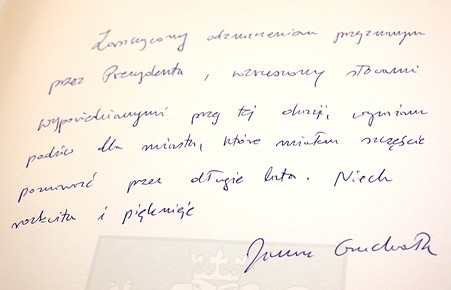 Zaszczycony odznaczeniem przyznanym
przez Prezydenta, wzruszony słowami
wypowiedzianymi przy tej okazji, wyrażam
podziw dla miasta, które miałem szczęście
poznawać przez długie lata. Niech
rozkwita i pięknieje